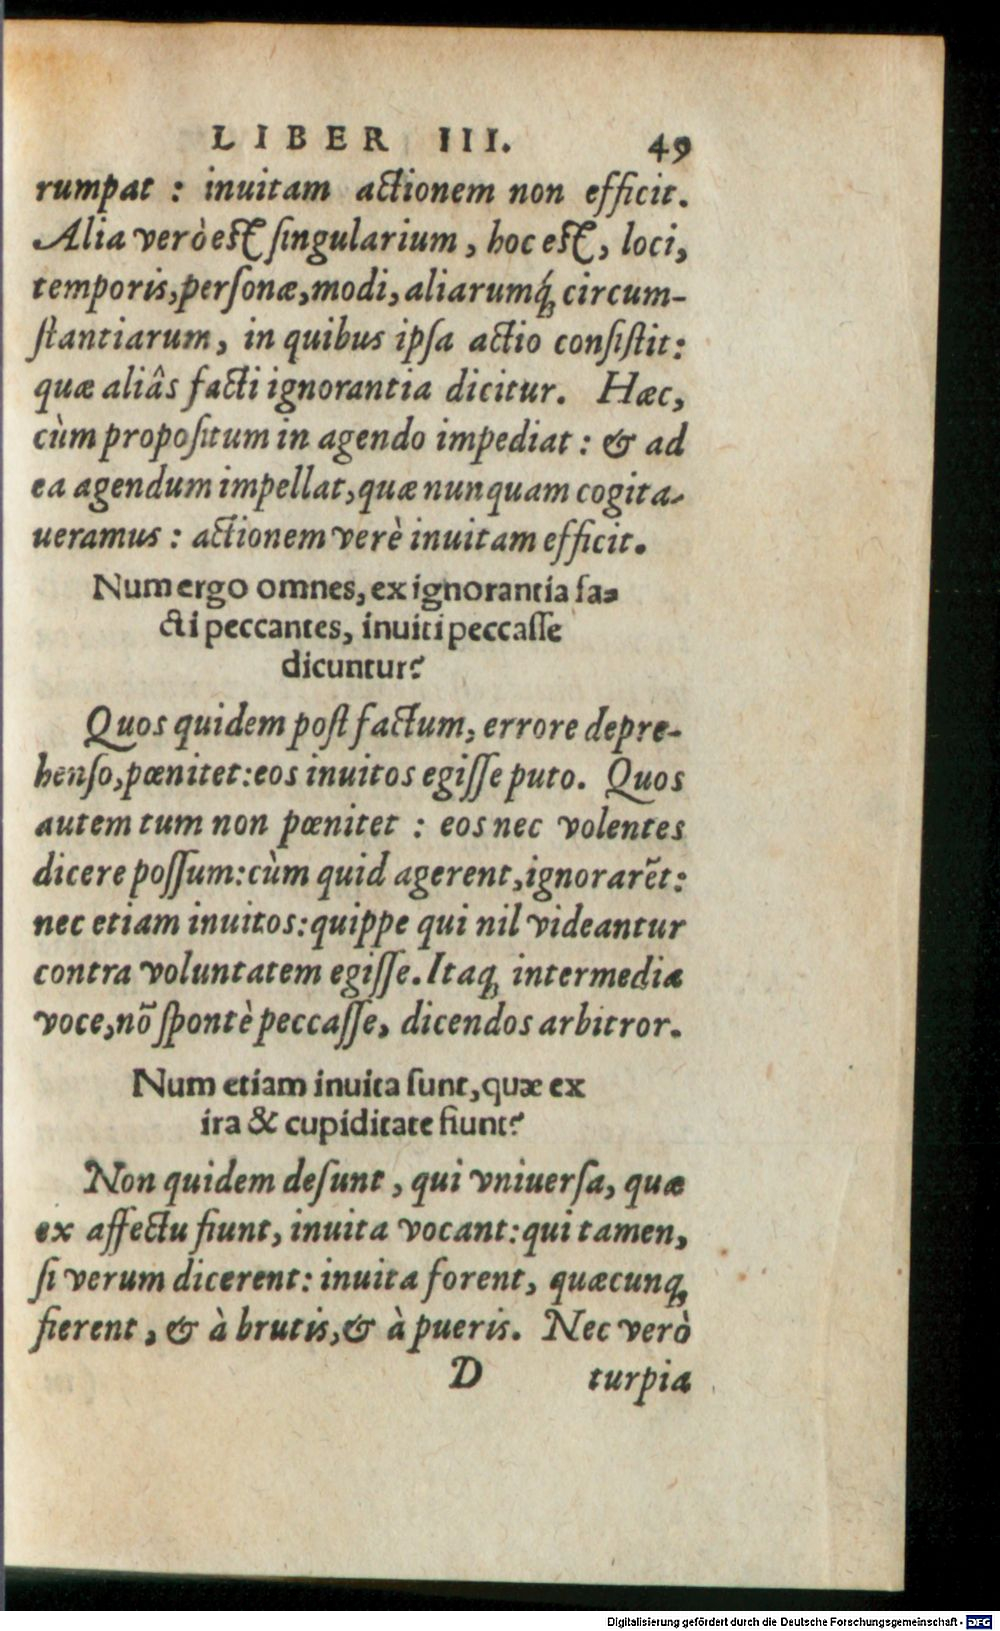 LIBER III. 49
rumpat : inuitam actionem non efficit.
Alia verò est singularium, hoc est, loci,
temporis, personæ, modi, aliarumq́; circum-
stantiarum, in quibus ipsa actio consistit:
quæ aliâs facti ignorantia dicitur. Hæc,
cùm propositum in agendo impediat : & ad
ea agendum impellat, quæ nunquam cogita-
ueramus : actionem verè inuitam efficit.
Num ergo omnes, ex ignorantia fa-
cti peccantes, inuiti peccasse
dicuntur?
Quos quidem post factum, errore depre-
henso, pœnitet: eos inuitos egisse puto. Quos
autem tum non pœnitet : eos nec volentes
dicere possum: cùm quid agerent, ignorarēt:
nec etiam inuitos: quippe qui nil videantur
contra voluntatem egisse. Itaq; intermedia
voce, nō spontè peccasse, dicendos arbitror.
Num etiam inuita sunt, quæ ex
ira & cupiditate fiunt?
Non quidem desunt, qui vniuersa, quæ
ex affectu fiunt, inuita vocant: qui tamen,
si verum dicerent: inuita forent, quæcunq;
fierent, & à brutis, & à pueris. Nec verò
D turpia
Digitalisierung gefördert durch die Deutsche Forschungsgemeinschaft - DFG